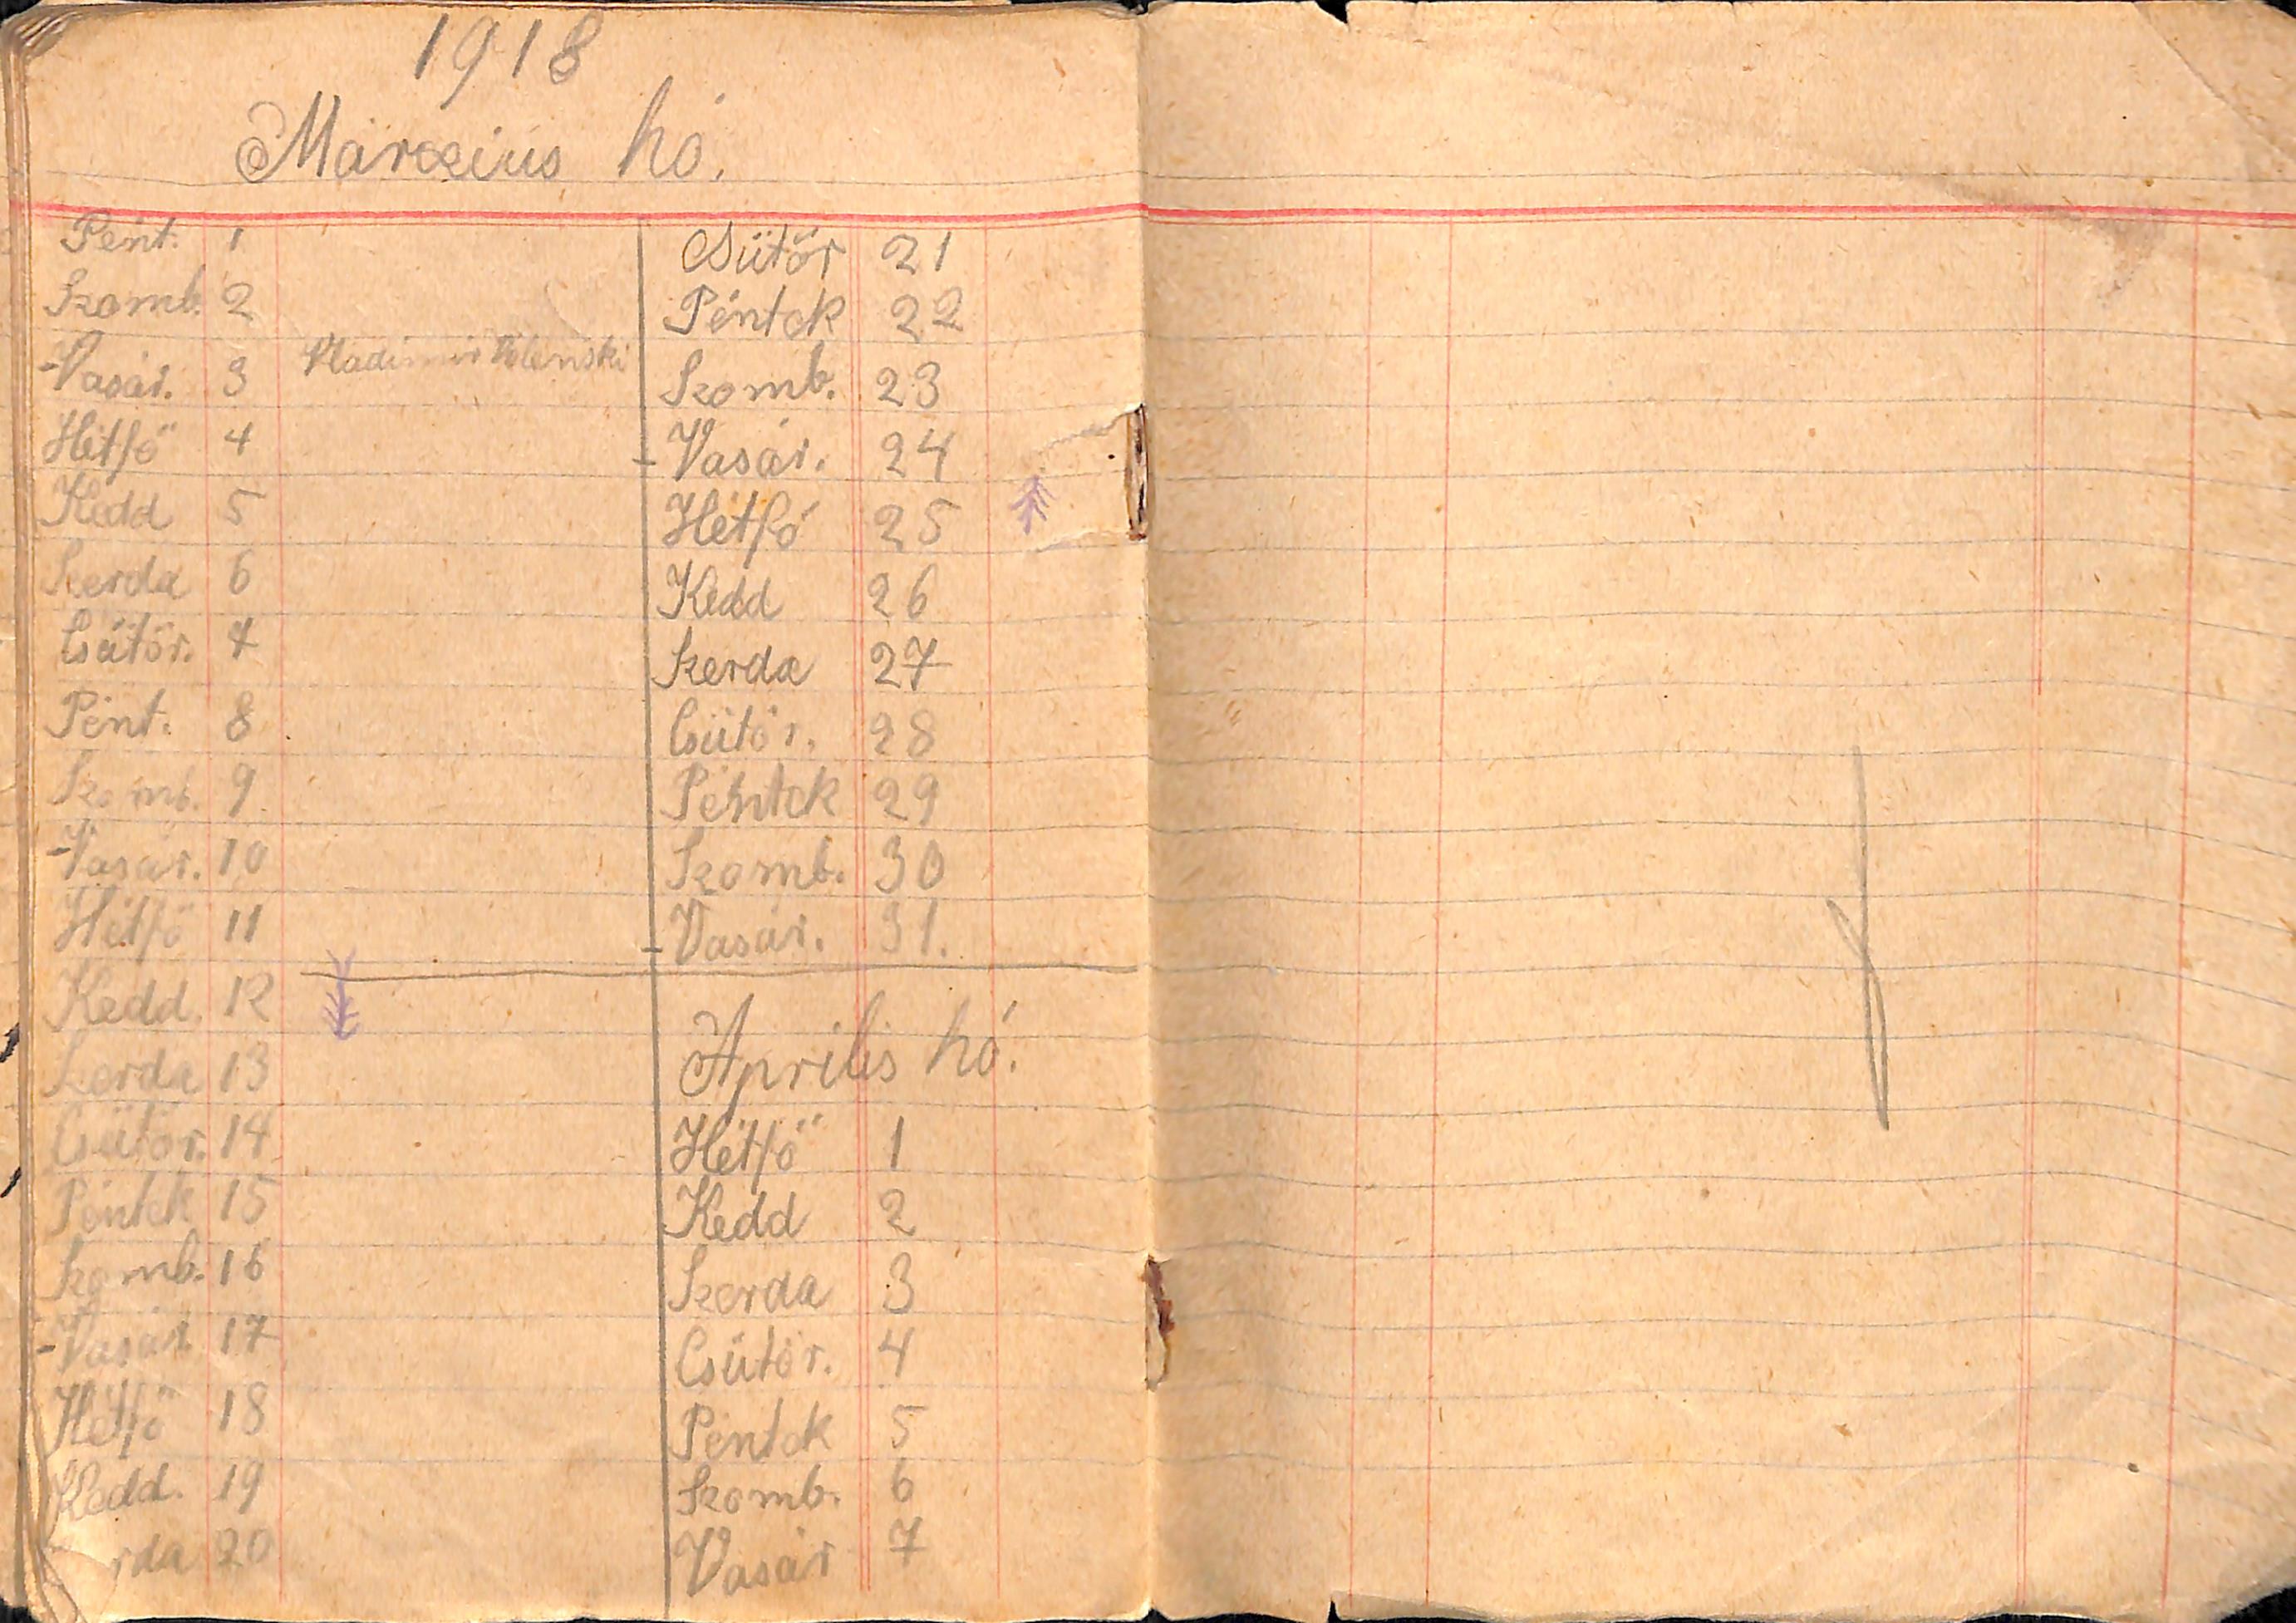 1918
Márczius hó.
Pént. 1
Szomb. 2
-Vasár. 3 Vladimir Volenski
Hétfő 4
Kedd 5
Szerda 6
Csütör. 7
Pént. 8
Szomb. 9.
-Vasár. 10
Hétfő 11
Kedd. 12
Szerda 13
Csütör. 14
Péntek 15
Szomb. 16
-Vasár. 17
Hétfő 18
Kedd. 19
rda 20
Csütör 21
Péntek 22
Szomb. 23
-Vasár. 24
Hétfó 25
Kedd 26
Szerda 27
Csütör. 28
Péntek 29
Szomb. 30
-Vasár. 31.
Április hó.
Hétfő 1
Kedd 2
Szerda 3
Csütör. 4
Péntek 5
Szomb. 6
Vasár 7